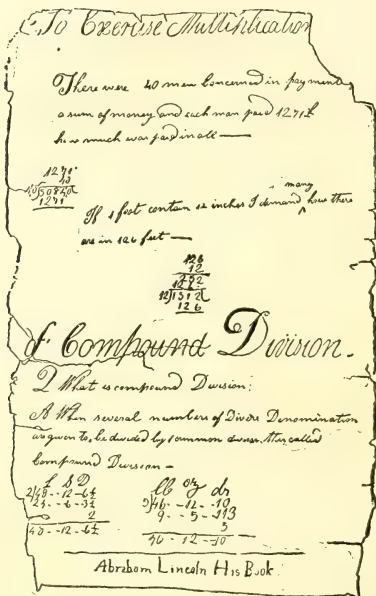 To Exercise Multiplication
There were 40 men concerned in payment
a sum of money and each man paid 1271£
how much was paid in all —
1271
40
40)50840
1271
many
If 1 foot contain 12 inches I demand ^ how there
are in 126 feet —
126
12
252
126
12)1512
126
of Compound Division.
Q What is compound Division;
A When several numbers of Divers Denomination
are given to be divided by 1 common divisor this called
Compound Division —
£ S D
2)48--12-6½
24--6-3¼
2
48--12-6½
lb oz dr
5)46--12--10
9--5--113
5
46-12-10
Abraham Lincoln His Book